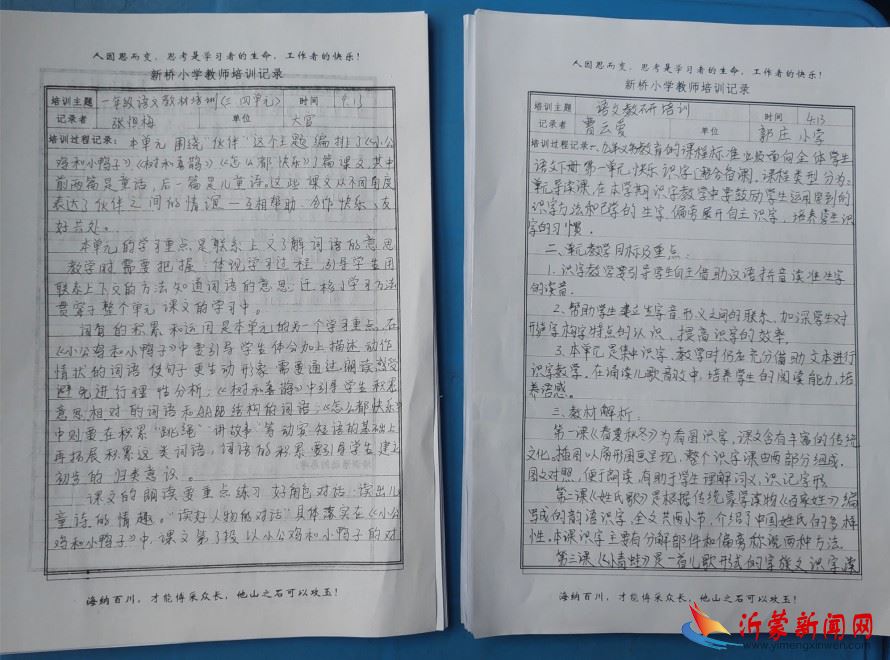 人因思而变，思考是学习者的生命，工作者的快乐！
新桥小学教师培训记录
培训主题 一年级语文教材培训(三、四单元) 时间 4.13
记录者 张 梅 单位 大官
培训过程记录：本单元围绕“伙伴”这个主题编排了《小公
鸡和小鸭子》《树和喜鹊》《怎么都快乐》3篇课文,其中
前两篇是童话,后一篇是儿童诗。这些课文从不同角度
表达了伙伴之间的情谊—互相帮助、合作快乐、友
好共处。
本单元的学习重点是联系上文了解词语的意思
教学时需要把握:体现学习过程,引导学生用
联系上下文的方法知道词语的意思,迁移学习方法
贯穿于整个单元课文的学习中。
词句的积累和运用是本单元的另一个学习重点。在
《小公鸡和小鸭子》中要引导学生体会加上描述动作
情状的词语使句子更生动形象,需要通过朗读感受
避免进行理性分析；《树和喜鹊》中引导学生积累
意思相对的词语和AABB结构的词语；《怎么都快乐》
中则要在积累“跳绳”“讲故事”等动宾短语的基础上
再拓展积累这类词语，词语的积累要引导学生建立
初步的归类意识。
课文的朗读要重点练习好角色对话,读出儿
童诗的情趣。“读好人物的对话”具体落实在《小公
鸡和小鸭子》中,课文第7段以小公鸡和小鸭子的对
海纳百川，才能博采众长，他山之石可以攻玉！
人因思而变，思考是学习者的生命，工作者的快乐！
新桥小学教师培训记录
培训主题 语文教研培训 时间 4.13
记录者 曹云爱 单位 郭庄小学
培训过程记录:一、九年义务教育的课程标准 面向全体学生
语文下册第一单元,快乐识字[ ],课程类型分为:
单元导读课,在本学期识字教学中要鼓励学生运用学到的
识字方法和已学的生字,偏旁展开自主识字,培养学生识
字的习惯.
二、单元教学目标及重点:
1.识字教学要引导学生自主借助汉语拼音读准生字
的读音.
2、帮助学生建立生字音形义之间的联系,加深学生对
形声字构字特点的认识,提高识字的效率.
3.本单元是集中识字,教学时仍应充分借助文本进行
识字教学,在诵读儿歌韵文中,培养学生的阅读能力,培
养语感.
三、教材解析:
第一课《春夏秋冬》为看图识字,课文含有丰富的传统
文化。插图以扇形图画呈现,整个识字课由两部分组成.
图文对照,便于朗读,有助于学生理解词义,识记字形
第二课《姓氏歌》是根据传统蒙学读物《百家姓》编
写成的韵语识字,全文共两小节,介绍了中国姓氏的多样
性.本课识字主要有分解部件和偏旁称说两种方法.
第三课《小青蛙》是一首儿歌形式的字族文识字,读
海纳百川，才能博采众长，他山之石可以攻玉！
沂蒙新闻网
www.yimengxinwen.com